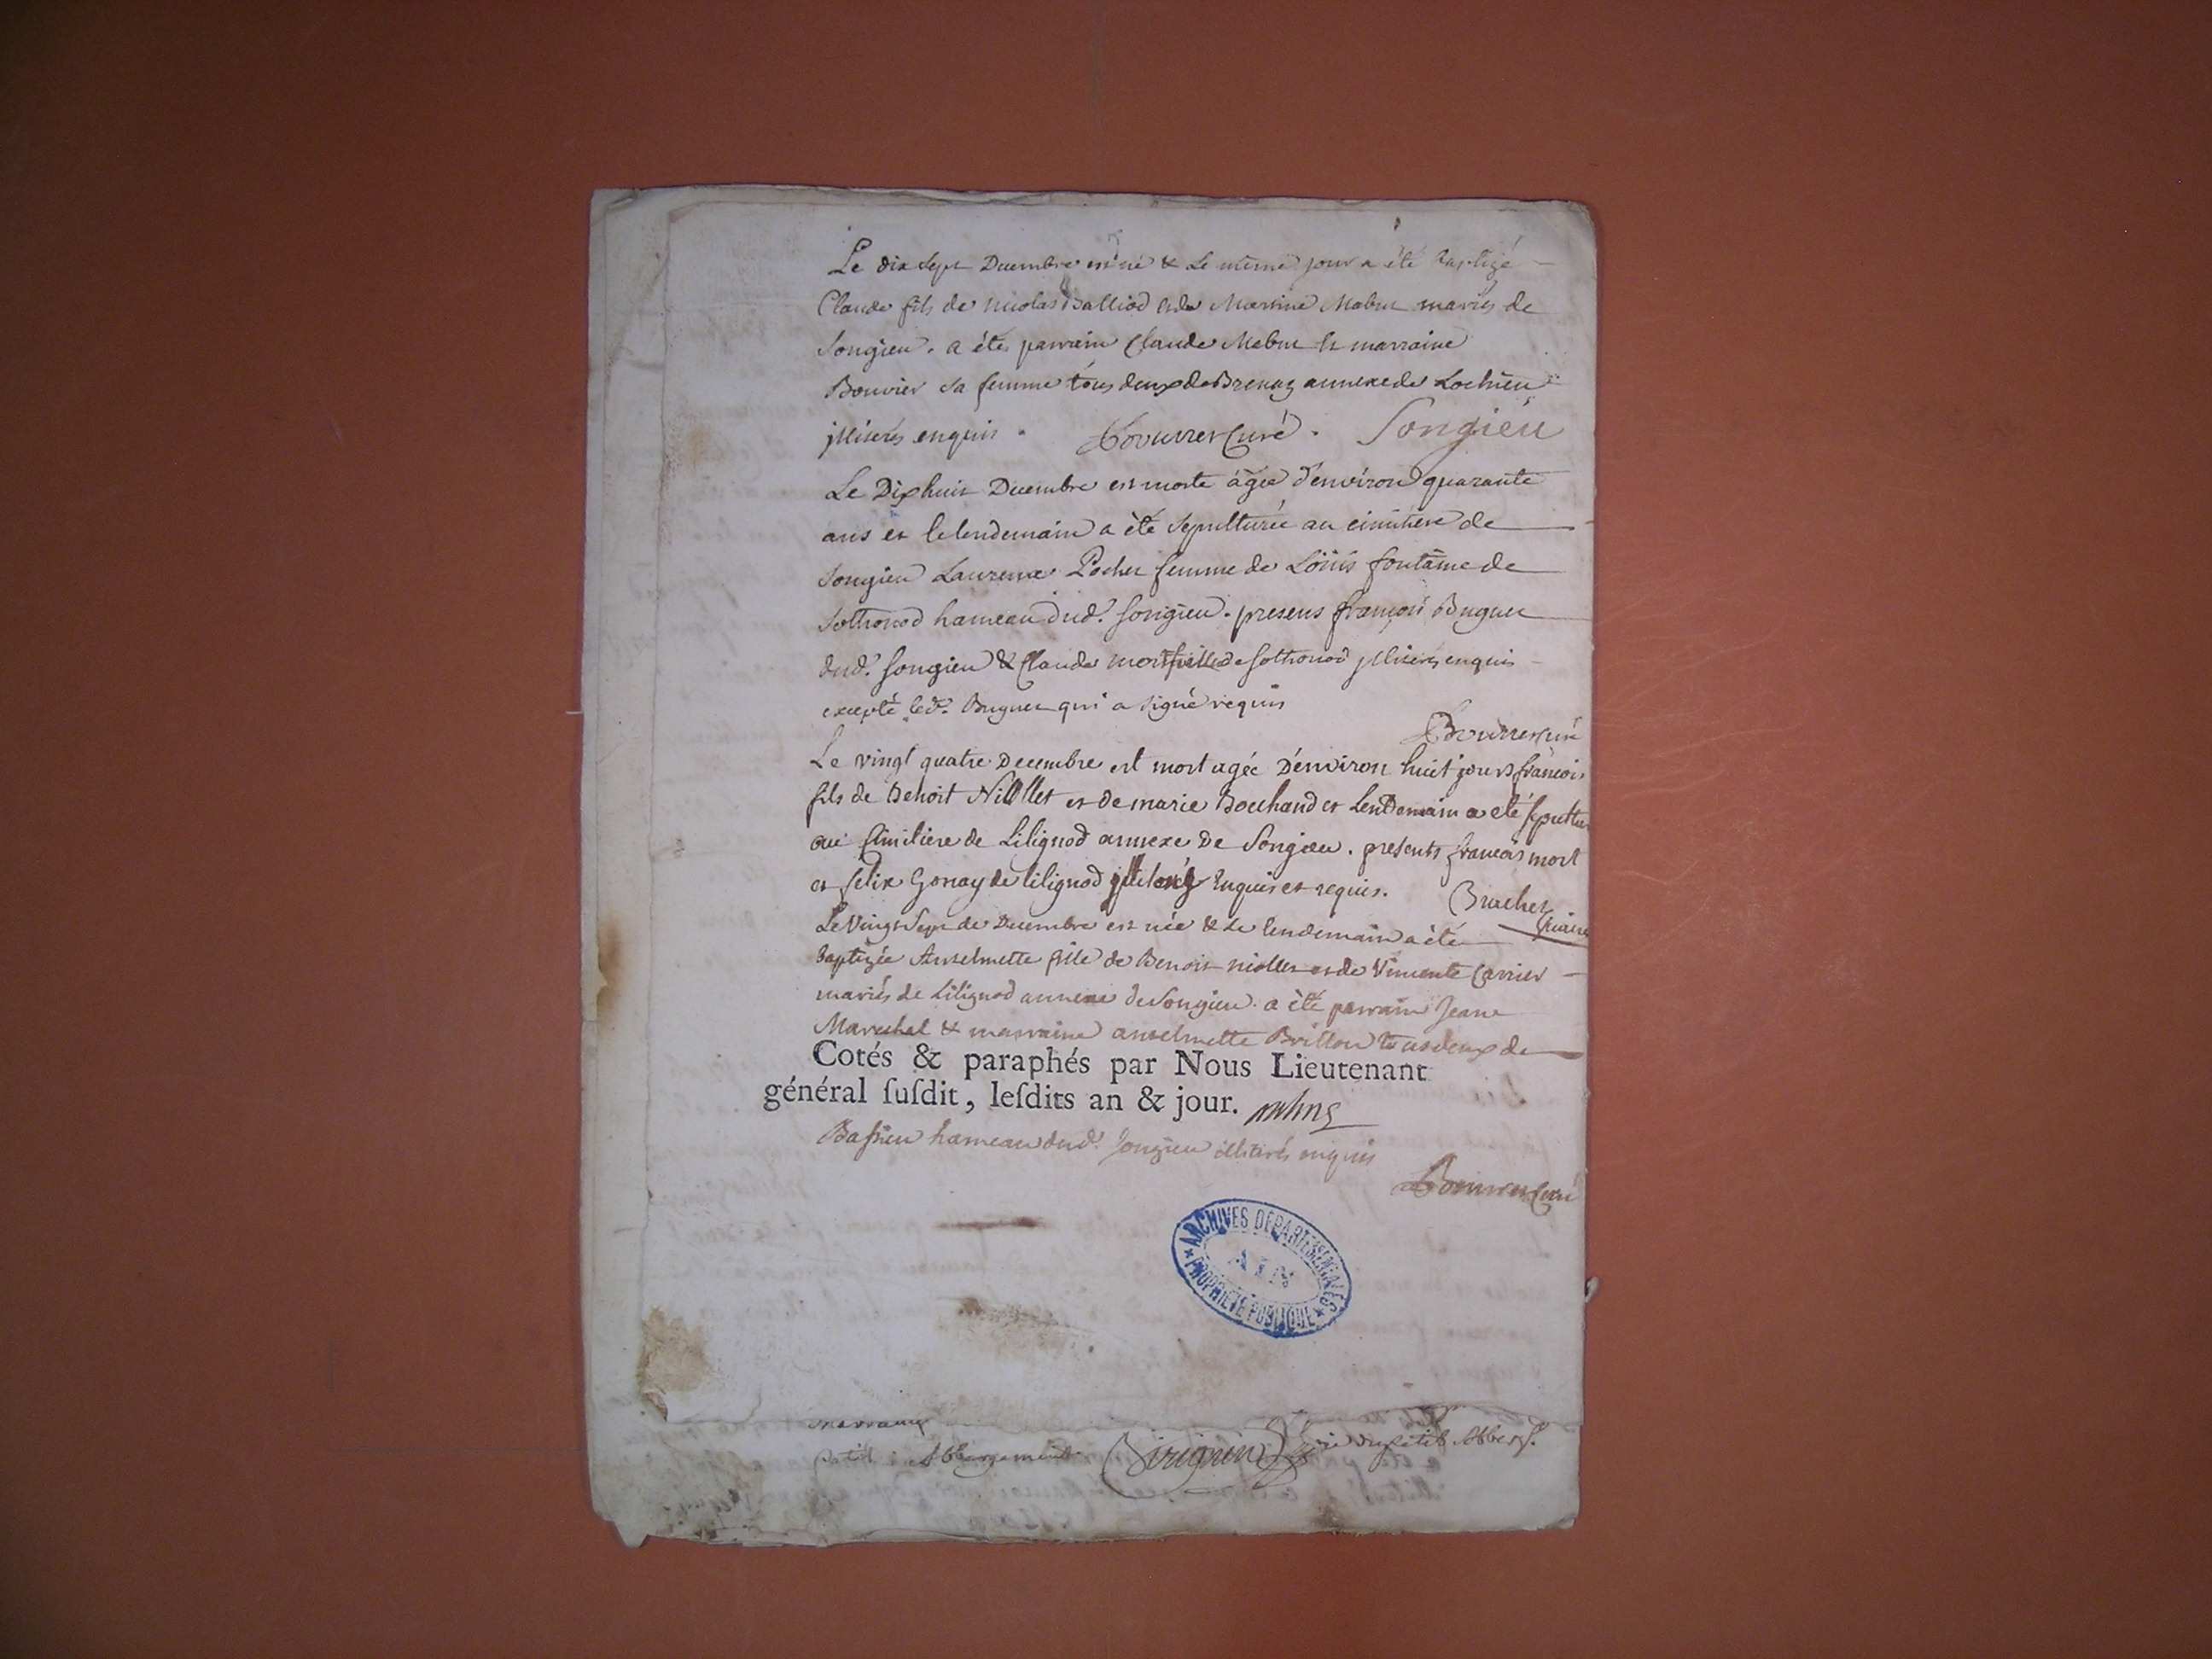 Le dix sept Decembre est né & Le même jour a été baptizé
Claude fils de nicolas Balliod et de Mabut mariés de
Songieu. a étés parrein Claude Mabut et marraine
Bouvier sa femme tous deux de Brenaz annexe de Lochieu
jlliterés enquis. Curé. Songieu
Le Dixhuit Decembre est morte âgée d'environ quarante
ans et le lendemain a èté sepulturée au cimitiere de
Songieu Laurence Pochet femme de Loüis fontaine de
Sothonod hameau dud. Songieu. presens françois Buguet
dud. Songieu & Claude de Sothonod jlliterés enquis
excepté led. Buguet qui a signé requis
curé
Le vingt quatre Decembre est mort agée D'environ huit jours francois
fils de Benoit et de marie Bouchand et Lendemain a eté sepultur
au Cimitiere de Lilignod annexe De Songieu. presents francois mort
et felix Gonay de lilignod Enquis et requis. Brachet
vicaire
Le Vingt Sept de Decembre est née & Le lendemain a été
baptizée Anselmette fille de Benoit niollet et de Vincente Carrier
mariés de Lilignod annexe de Songieu. a èté parrain Jean
Marechal & marraine anselmette Brillon tous deux de
Cotés & paraphés par Nous Lieutenant
général susdit, lesdits an & jour.
Bassieu hameau dud. Songieu illiterés enquis
Curé
ARCHIVES DEPARTEMENTALES
AIN
PROPRIETE PUBLIQUE
marraine
petit Abbergement du petit Abberg.